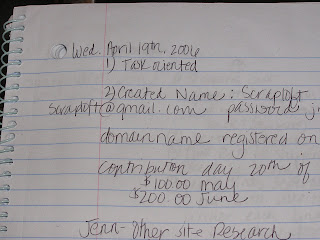 Wed. April 19th, 2006
1) Task oriented
2) Created Name: Scraploft
scraploft@gmail.com password j
domain name registered on
contribution day 20th of
$100.00 may
$200.00 June
Jenn- Other site Research